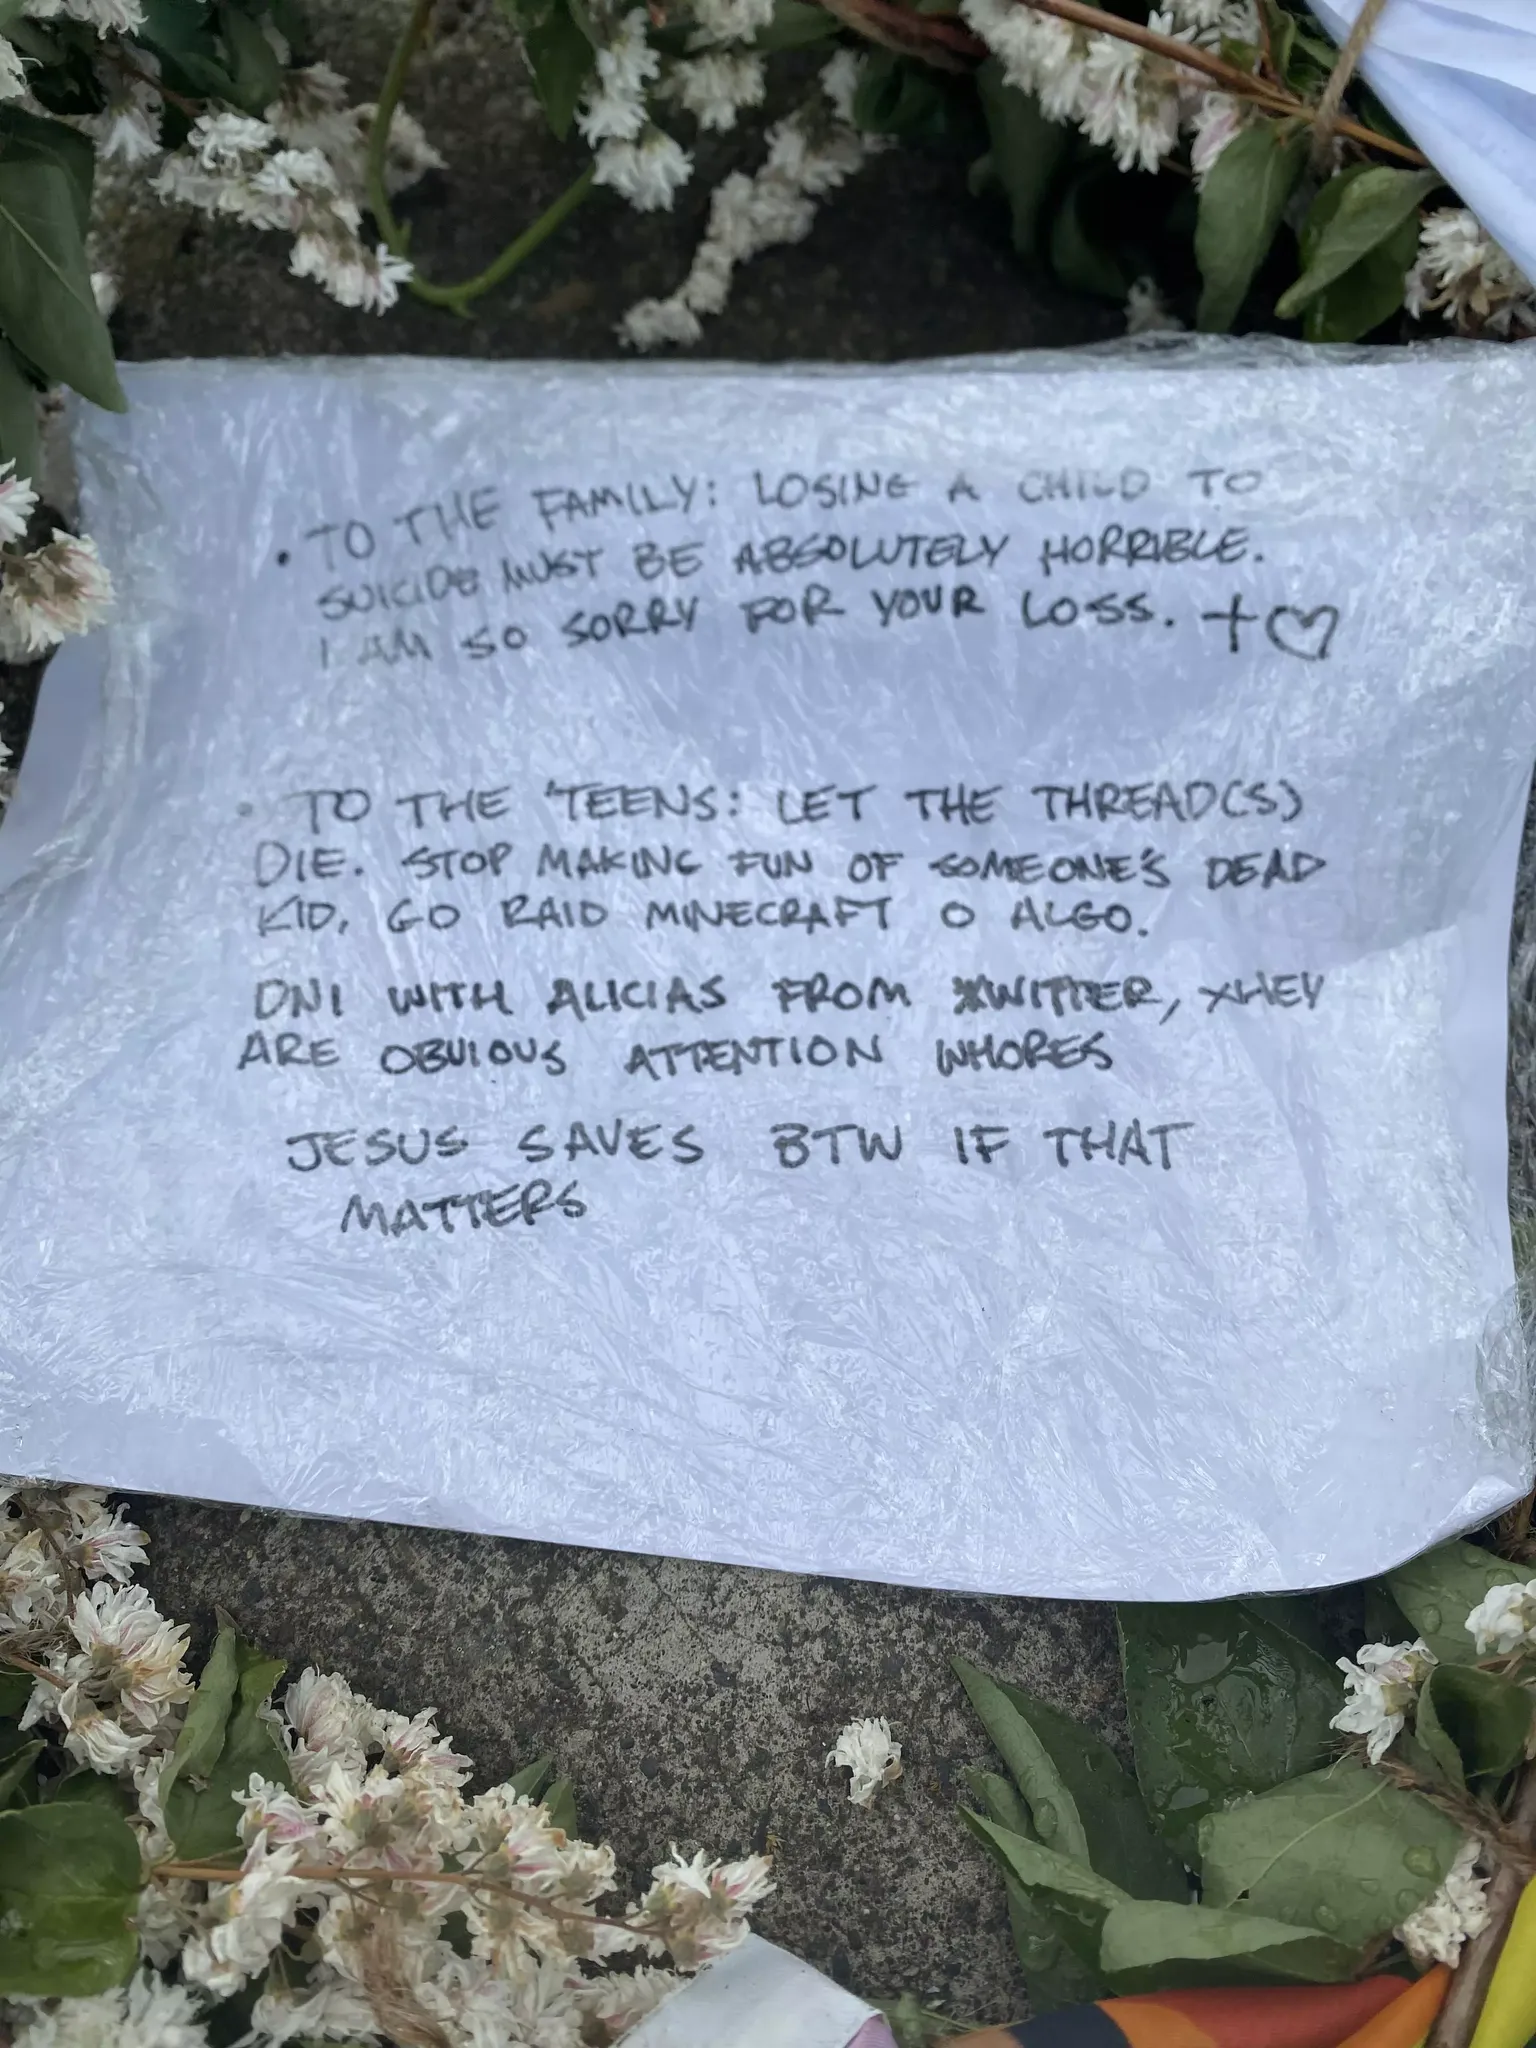 • TO THE FAMILY: LOSING A CHILD TO
SUICIDE MUST BE ABSOLUTELY HORRIBLE.
I AM SO SORRY FOR YOUR LOSS. +♡
• TO THE 'TEENS: LET THE THREAD(S)
DIE. STOP MAKING FUN OF SOMEONE'S DEAD
KID. GO RAID MINECRAFT O ALGO.
DNI WITH ALICIAS FROM XWITTER, XHEY
ARE OBVIOUS ATTENTION WHORES
JESUS SAVES BTW IF THAT
MATTERS